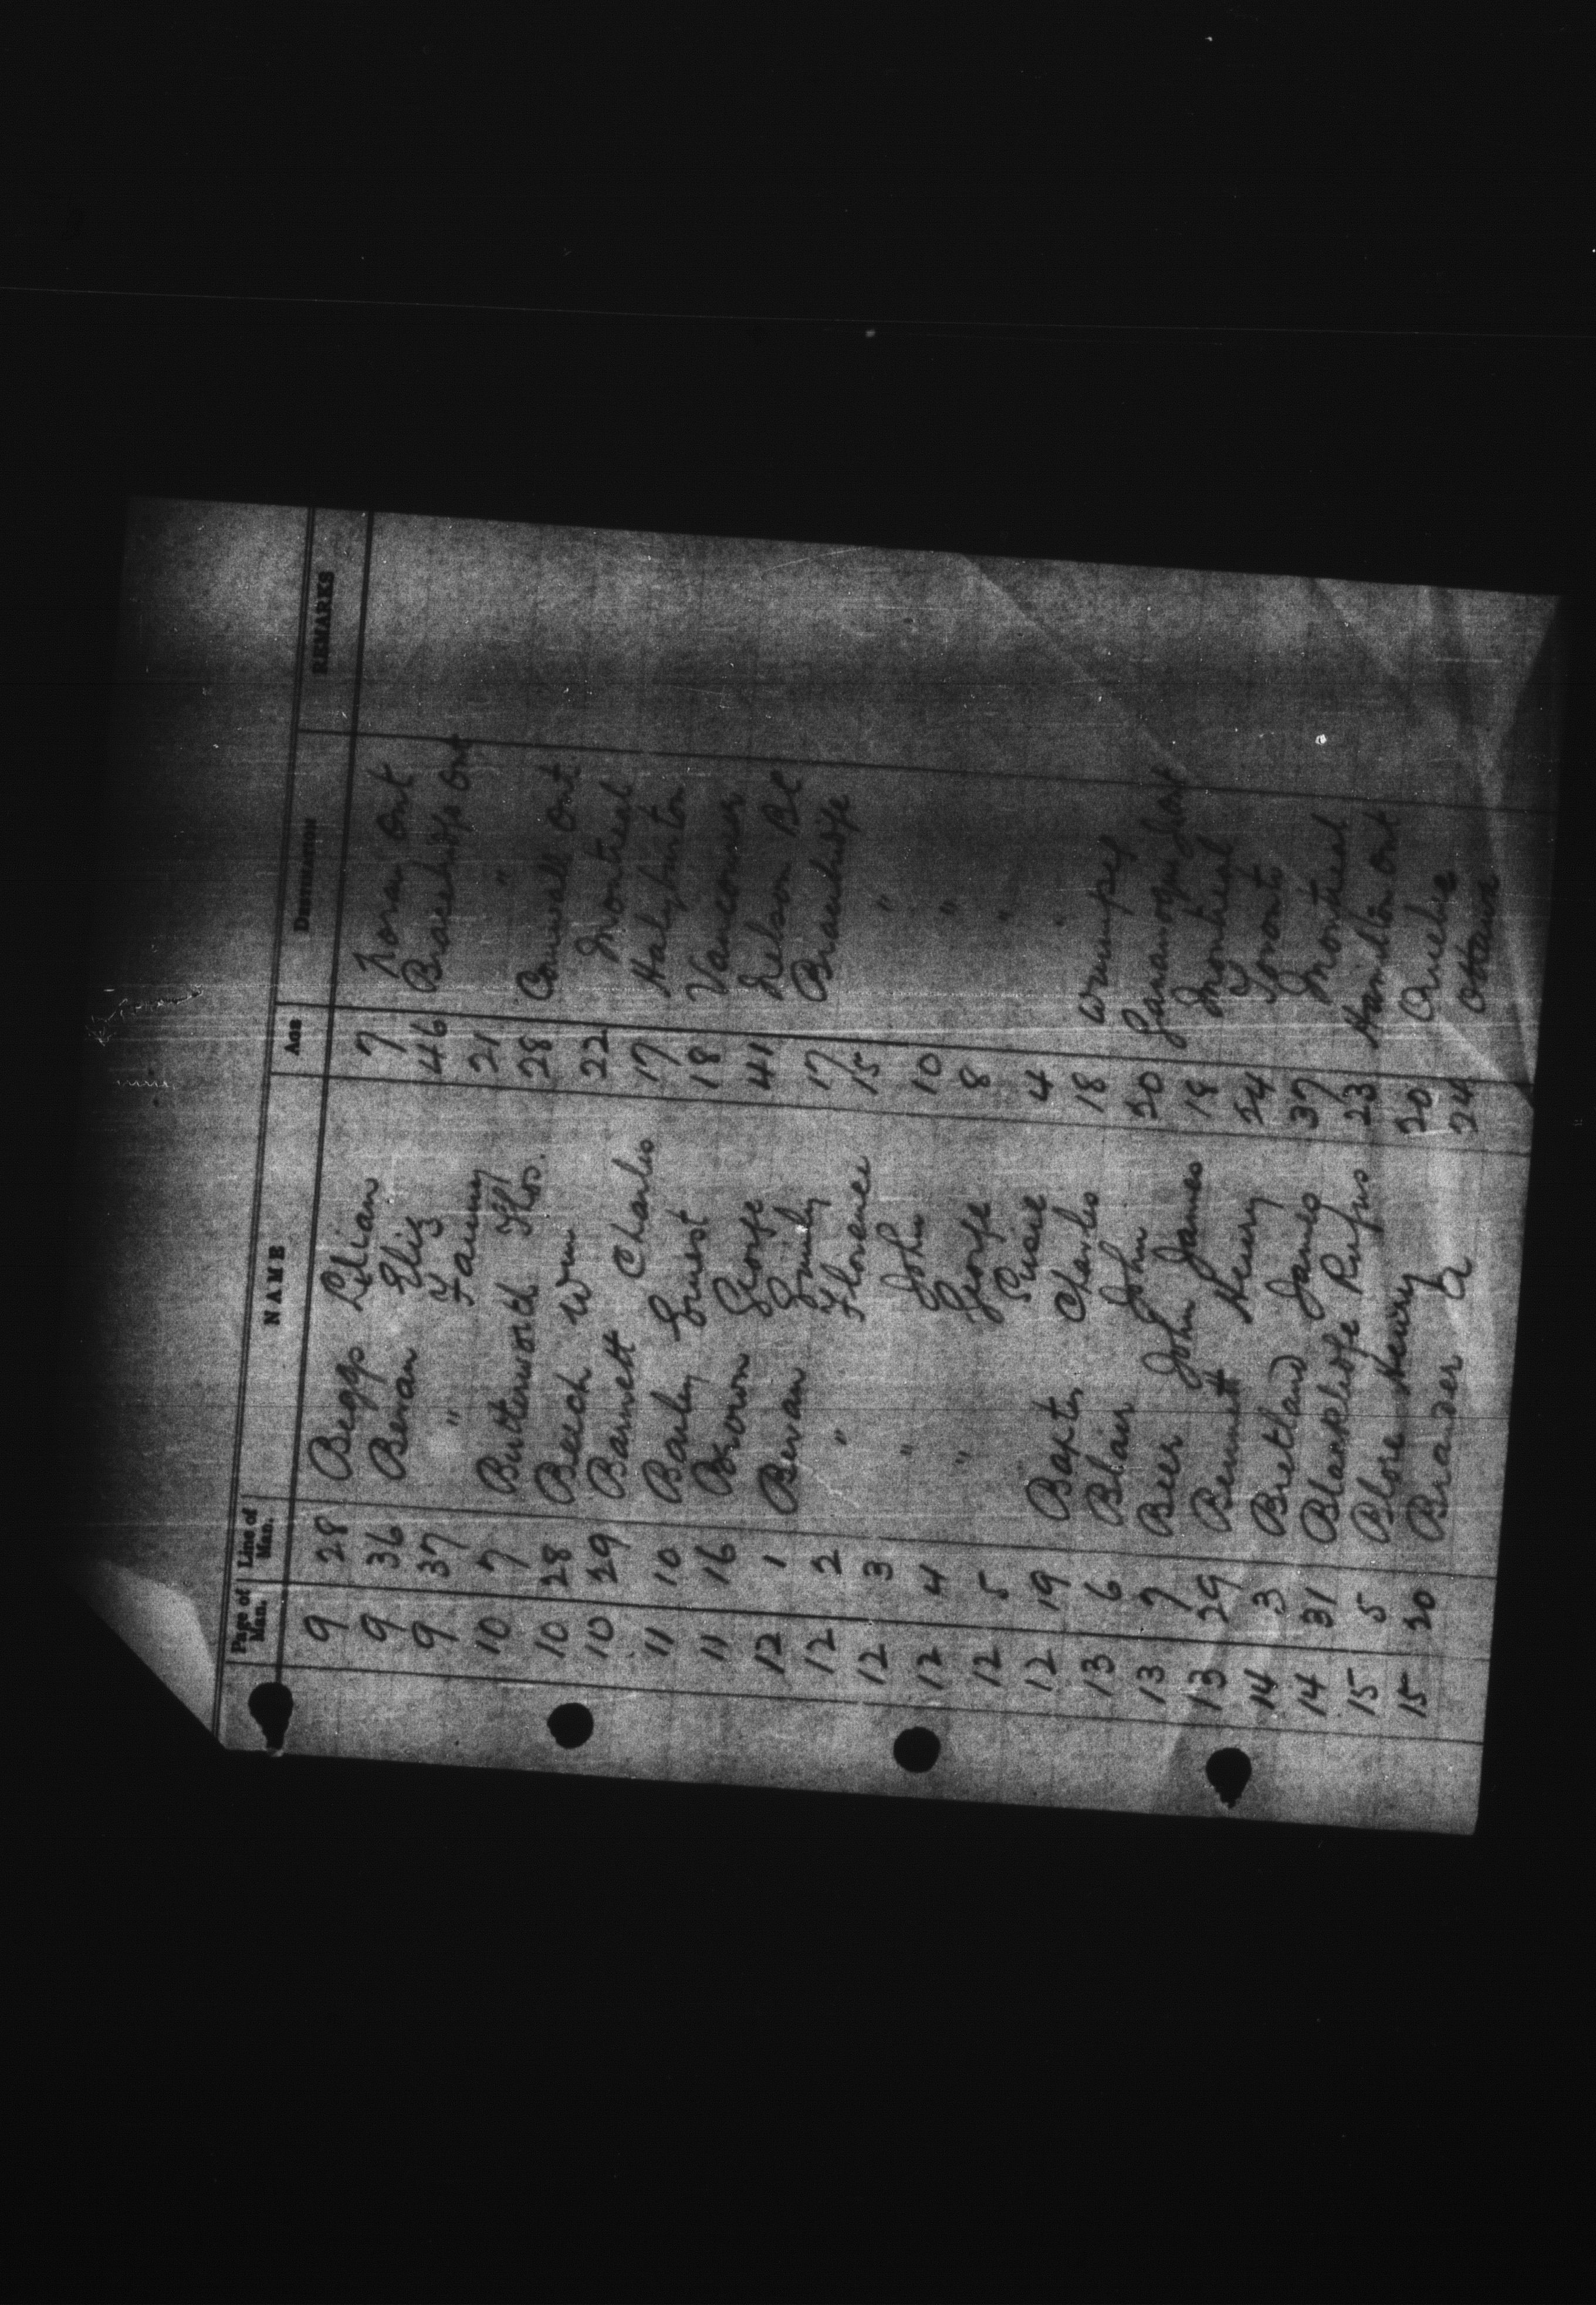 Page of Man. Line of Man. NAME AGE DESTINATION REMARKS
9 28 Beggs Lilian 7 Ont
9 36 Bevan Eliz 46 Ont
9 37 " Fanny 21 "
10 7 Butterworth Thos. 28 Cornwall Ont
10 28 Beech Wm 22 Montreal
10 29 Barnett Charles 17 Halyburton
11 10 Ernest 18 Vancouver
11 16 Brown George 41 Nelson BC
12 1 Bevan Emily 17
12 2 " Florence 15 "
12 3 " John 10 "
12 4 " George 8 "
12 5 Susie 4 "
12 19 Charles 18 Winnipeg
13 6 Blair John 20 Ont
13 7 Beer John James 18 Montreal
13 29 Bennett Henry 24 Toronto
14 3 Bretland James 37 Montreal
14 31 Rufus 23 Hamilton Ont
15 5 Blore Henry 20 Quebec
15 20 Brander A 24 Ottawa